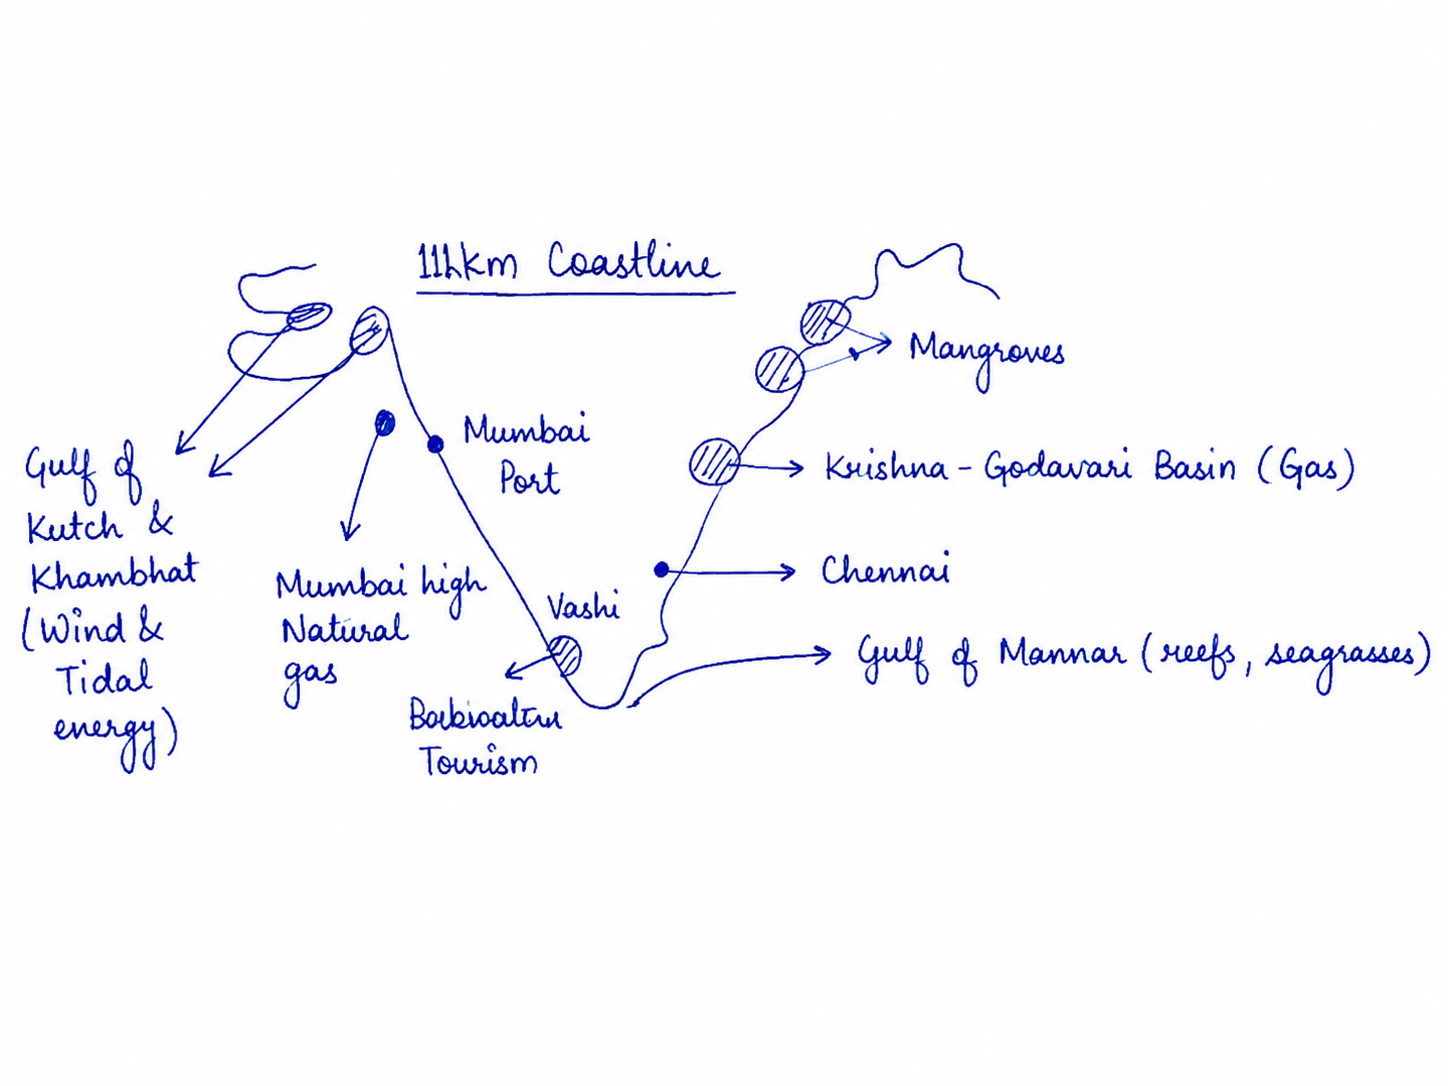 Coastline
Mangroves
Mumbai
Port
Gulf of
Kutch &
Khambhat
(Wind &
Tidal
energy)
Krishna - Godavari Basin (Gas)
Mumbai high
Natural
gas
Chennai
Vashi
Gulf of Mannar (reefs, seagrasses)
Tourism